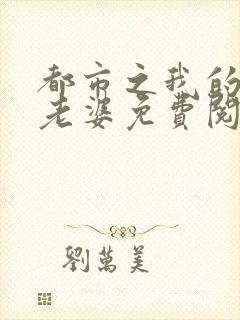 都市之我的
老婆免費閱
劉萬美